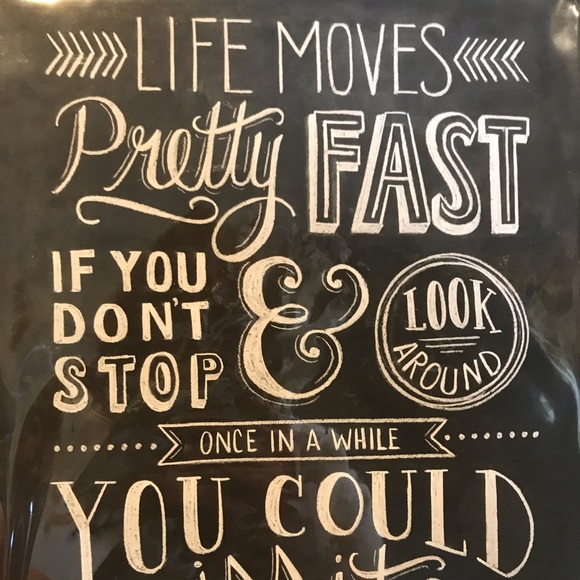 LIFE MOVES
Pretty FAST
IF YOU
DON'T
STOP
&
LOOK
AROUND
ONCE IN A WHILE
YOU COULD